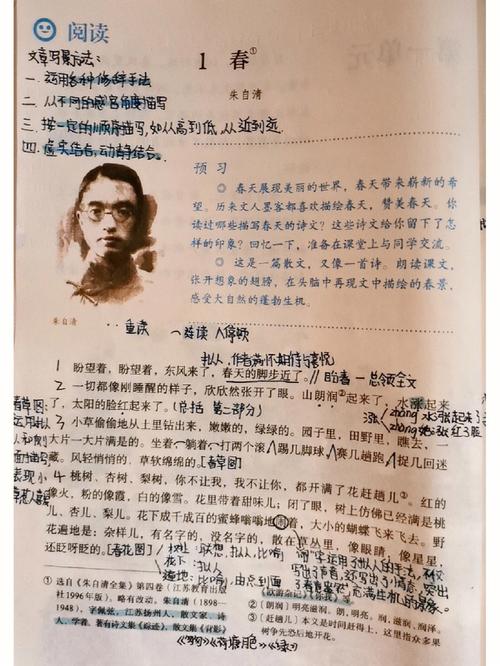 阅读
1 春①
朱自清
文章写景方法：
一. 巧用各种修辞手法
二. 从不同的感官角度描写
三. 按一定的顺序描写，如从高到低，从近到远.
四. 虚实结合，动静结合.
预习
◎ 春天展现美丽的世界，春天带来崭新的希
望。历来文人墨客都喜欢描绘春天，赞美春天。你
读过哪些描写春天的诗文？这些诗文给你留下了怎
样的印象？回忆一下，准备在课堂上与同学交流。
◎ 这是一篇散文，又像一首诗。朗读课文，
张开想象的翅膀，在头脑中再现文中描绘的春景，
感受大自然的蓬勃生机。
朱自清
重读 连读 ∧停顿
拟人，作者满怀期待与喜悦
1 盼望着，盼望着，东风来了，春天的脚步近了。// 盼春 总领全文
2 一切都像刚睡醒的样子，欣欣然张开了眼。山朗润②起来了，水涨起来
了，太阳的脸红起来了。(总括 第二部分)
涨 zhǎng 水涨起来了
zhàng 红脸
3 小草偷偷地从土里钻出来，嫩嫩的，绿绿的。园子里，田野里，瞧去，一
大片一大片满是的。坐着，躺着，打两个滚，踢几脚球，赛几趟跑，捉几回迷
藏。风轻悄悄的，草软绵绵的。[春草图]
4 桃树、杏树、梨树，你不让我，我不让你，都开满了花赶趟儿③。红的
像火，粉的像霞，白的像雪。花里带着甜味儿；闭了眼，树上仿佛已经满是桃
儿、杏儿、梨儿。花下成千成百的蜜蜂嗡嗡地闹着，大小的蝴蝶飞来飞去。野
花遍地是：杂样儿，有名字的，没名字的，散在草丛里，像眼睛，像星星，
还眨呀眨的。[春花图]
树上：联想，拟人，比喻
花下：拟人
遍地：比喻，由点到面
① 选自《朱自清全集》第四卷（江苏教育出版
社1996年版）。略有改动。朱自清（1898—
1948），字佩弦，江苏扬州人，散文家、诗
人、学者。著有诗文集《踪迹》，散文集《背影》
《欧游杂记》《你我》等。
② 〔朗润〕明亮滋润。朗，明亮。润，滋润。
③ 〔赶趟儿〕本义是时间赶得上，这里指众多果
树争先恐后地开花。